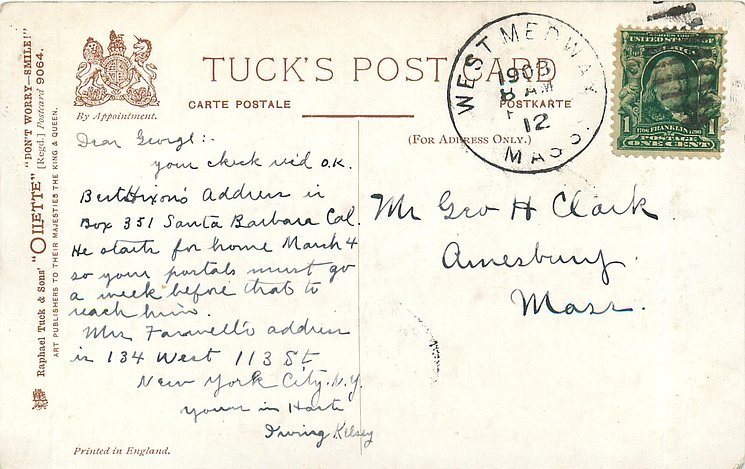 "DON'T WORRY—SMILE!"
Raphael Tuck & Sons' "OILETTE" [Regd.] Postcard 9064.
ART PUBLISHERS TO THEIR MAJESTIES THE KING & QUEEN.
By Appointment.
TUCK'S POST CARD
CARTE POSTALE
POSTKARTE
(FOR ADDRESS ONLY.)
WEST MEDWAY
1908
8 AM
12
MASS.
UNITED STATES OF
1706 FRANKLIN 1790
1 POSTAGE 1
ONE CENT
Dear George:.
your check rec'd O.K.
Bert Hixon's Address is
Box 351 Santa Barbara Cal.
He starts for home March 4
so your postals must go
a week before that to
reach him.
Mrs Farwell's address
is 134 West 113 St
New York City. N.Y.
yours in Haste
Irving Kelsey
Mr Geo H Clark
Amesbury.
Mass.
Printed in England.